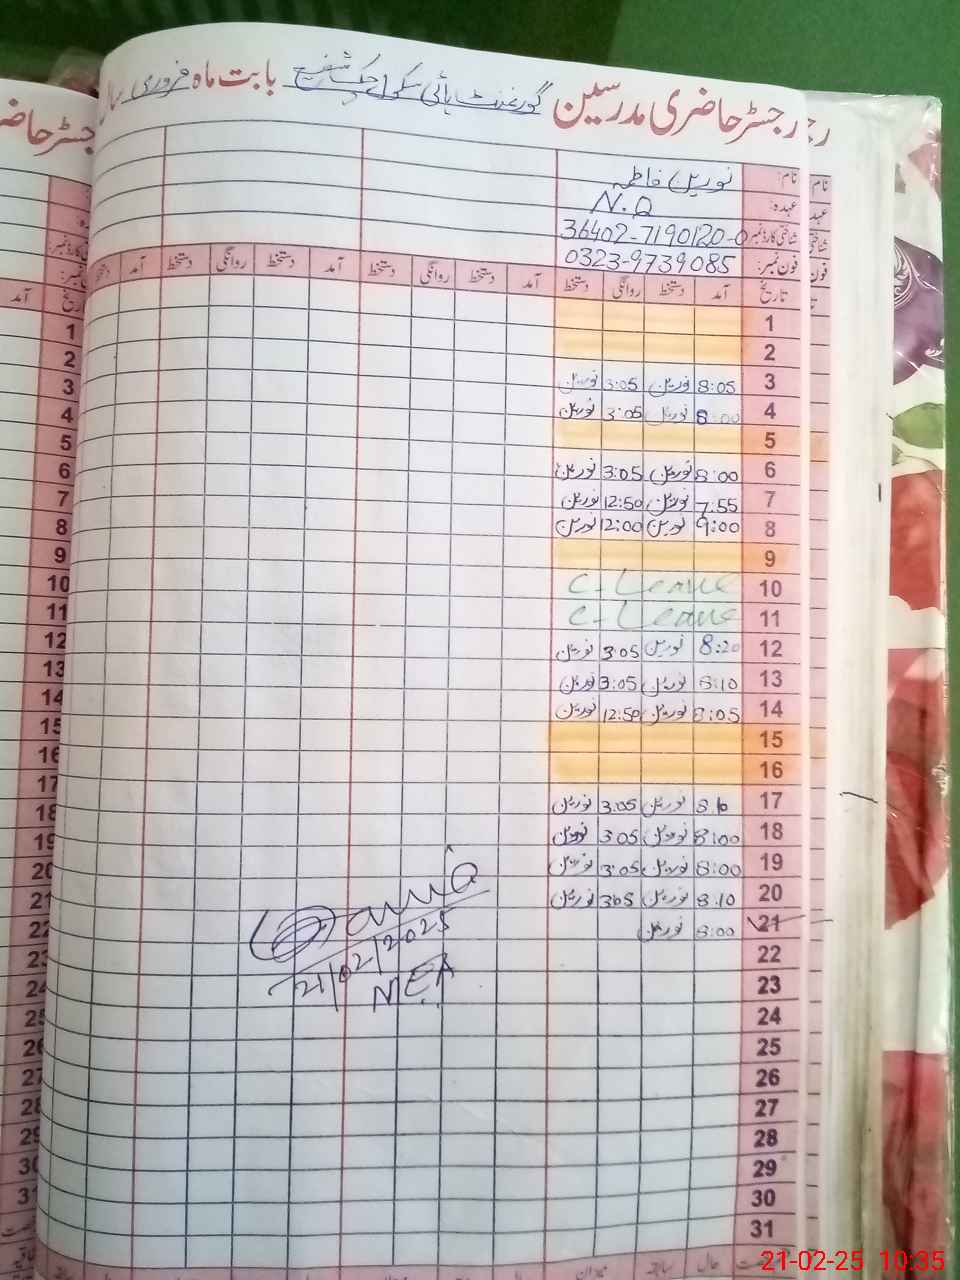 رجسٹر حاضری مدرسین گورنمنٹ ہائی سکول چک شفیع بابت ماہ فروری سال
نام: نورین فاطمہ
عہدہ: N.Q
شناختی کارڈ نمبر 36402-7190120-0
فون نمبر: 0323-9739085
تاریخ آمد دستخط روانگی دستخط آمد دستخط روانگی دستخط آمد دستخط روانگی دستخط آمد
1
2
3 8:05 نورین 3:05 نورین
4 8:00 نورین 3:05 نورین
5
6 8:00 نورین 3:05 نورین
7 7:55 نورین 12:50 نورین
8 9:00 نورین 12:00 نورین
9
10 C-Leave
11 C-Leave
12 8:20 نورین 3:05 نورین
13 8:10 نورین 3:05 نورین
14 8:05 نورین 12:50 نورین
15
16
17 8:10 نورین 3:05 نورین
18 8:00 نورین 3:05 نورین
19 8:00 نورین 3:05 نورین
20 8:10 نورین 3:05 نورین
21 8:00 نورین
22
23
24
25
26
27
28
29
30
31
21/02/2025
MEA
21-02-25 10:35